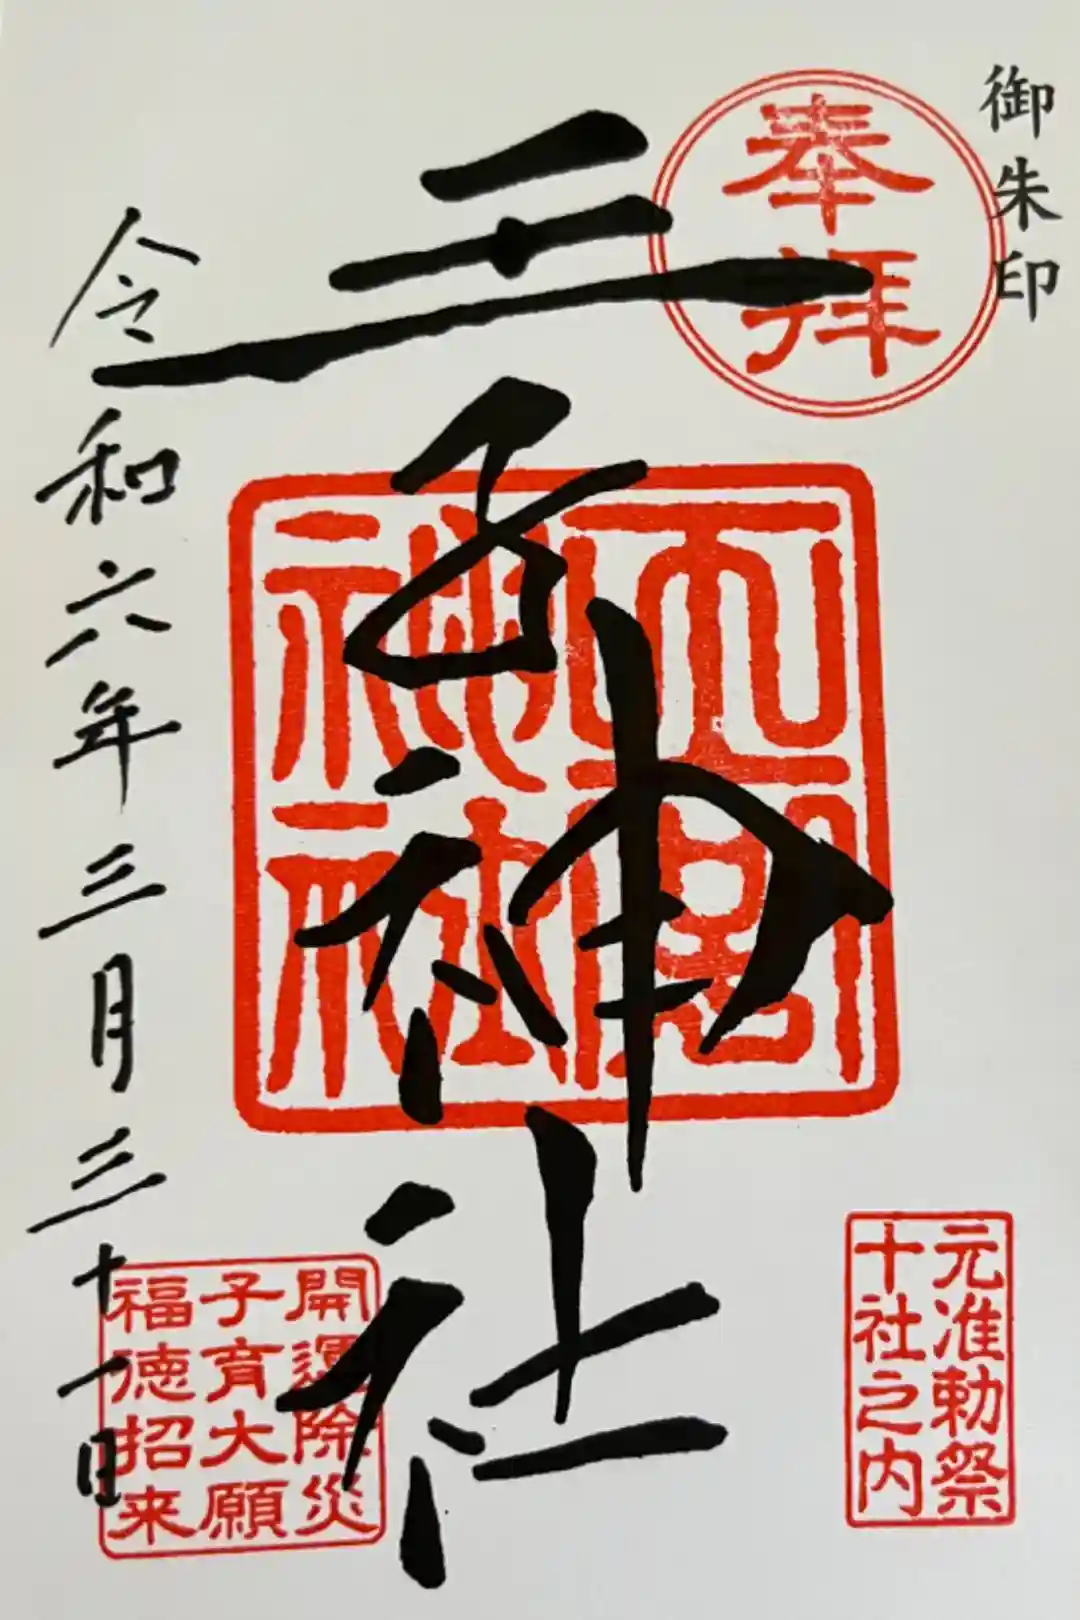 御朱印
奉拝
王子神社
元准勅祭
十社之内
開運除災
子育大願
福徳招来
令和六年三月三十一日